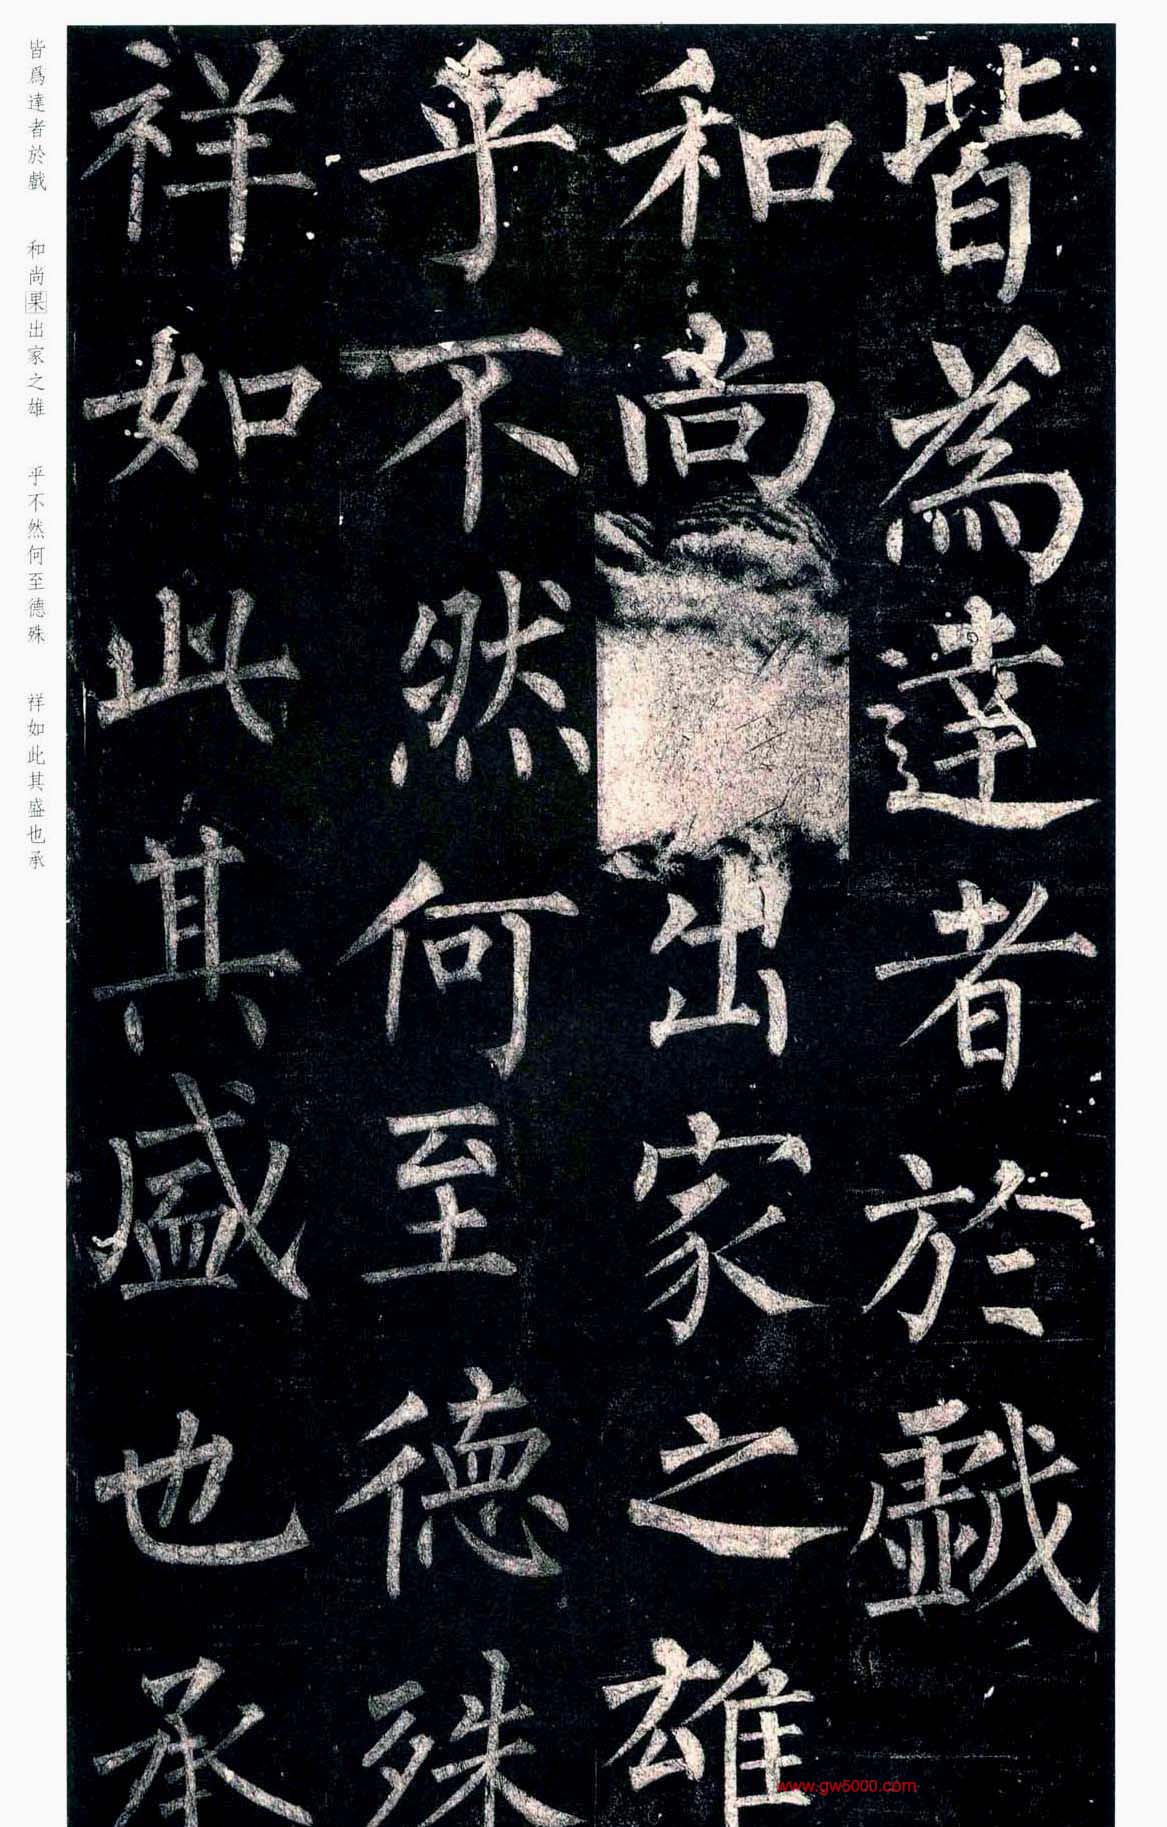 皆為達者於戲
和尚出家之雄
乎不然何至德殊
祥如此其盛也承
皆爲達者於戲 和尚果出家之雄 乎不然何至德殊 祥如此其盛也承
www.gw5000.com